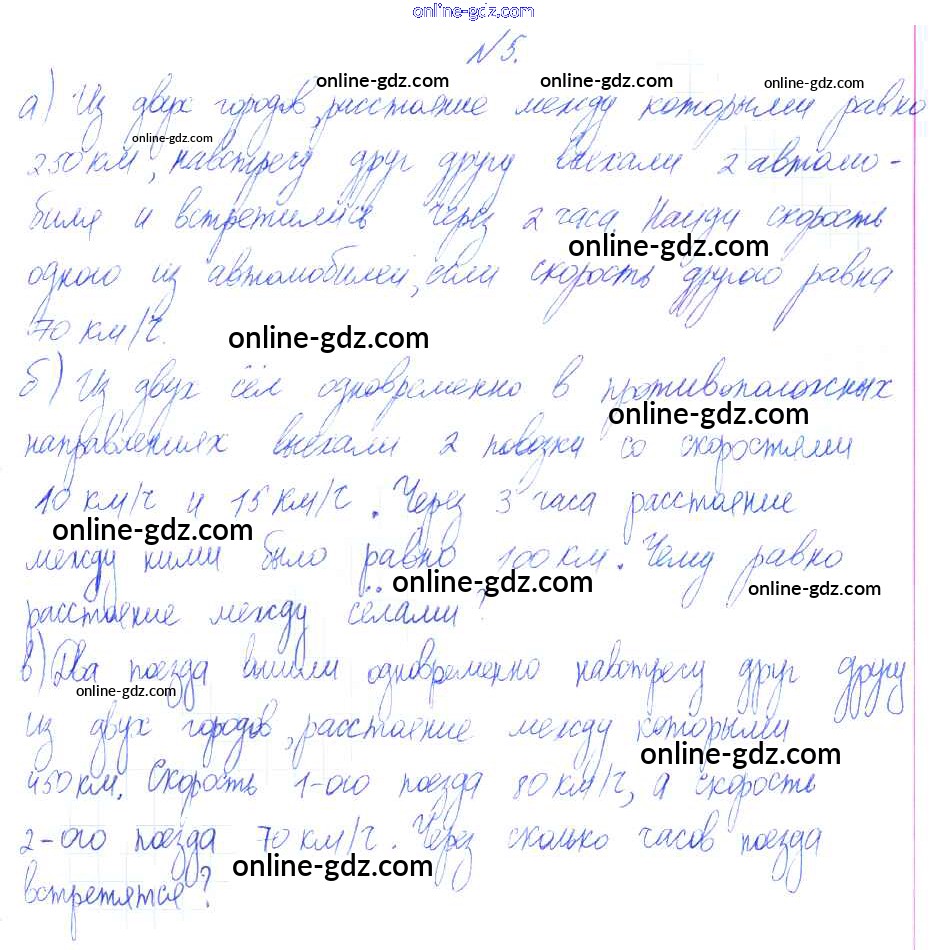 online-gdz.com
№5.
online-gdz.com online-gdz.com
а) Из двух городов, расстояние между которыми равно
online-gdz.com
250 км, навстречу друг другу выехали 2 автомо-
биля и встретились через 2 часа. Найди скорость
online-gdz.com
одного из автомобилей, если скорость другого равна
70 км/ч.
online-gdz.com
б) Из двух сёл одновременно в противоположных
online-gdz.com
направлениях выехали 2 повозки со скоростями
10 км/ч и 15 км/ч. Через 3 часа расстояние
online-gdz.com
между ними было равно 100 км. Чему равно
online-gdz.com online-gdz.com
расстояние между сёлами?
в) Два поезда вышли одновременно навстречу друг другу
online-gdz.com
из двух городов, расстояние между которыми
online-gdz.com
450 км. Скорость 1-ого поезда 80 км/ч, а скорость
2-ого поезда 70 км/ч. Через сколько часов поезда
online-gdz.com
встретятся?